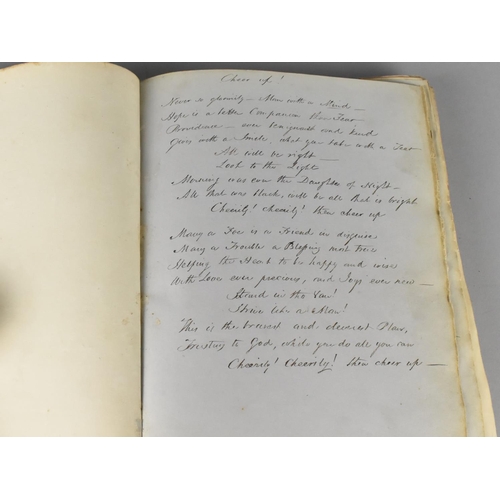 Cheer up!
Never go gloomily - Man with a Mind -
Hope is a better Companion than Fear
Providence - ever benignant and kind
Gives with a Smile, what you take with a Tear
All will be right -
Look to the Light
Morning was ever the Daughter of Night -
All that was black, will be all that is bright
Cheerily! cheerily! then cheer up
Many a Foe is a Friend in disguise
Many a Trouble a Blessing most true
Helping the Heart to be happy and wise
With Love ever precious, and Joys ever new -
Stand in the Van!
Strive like a Man!
This is the bravest and cleverest Plan,
Trusting to God, while you do all you can
Cheerily! Cheerily! then cheer up -